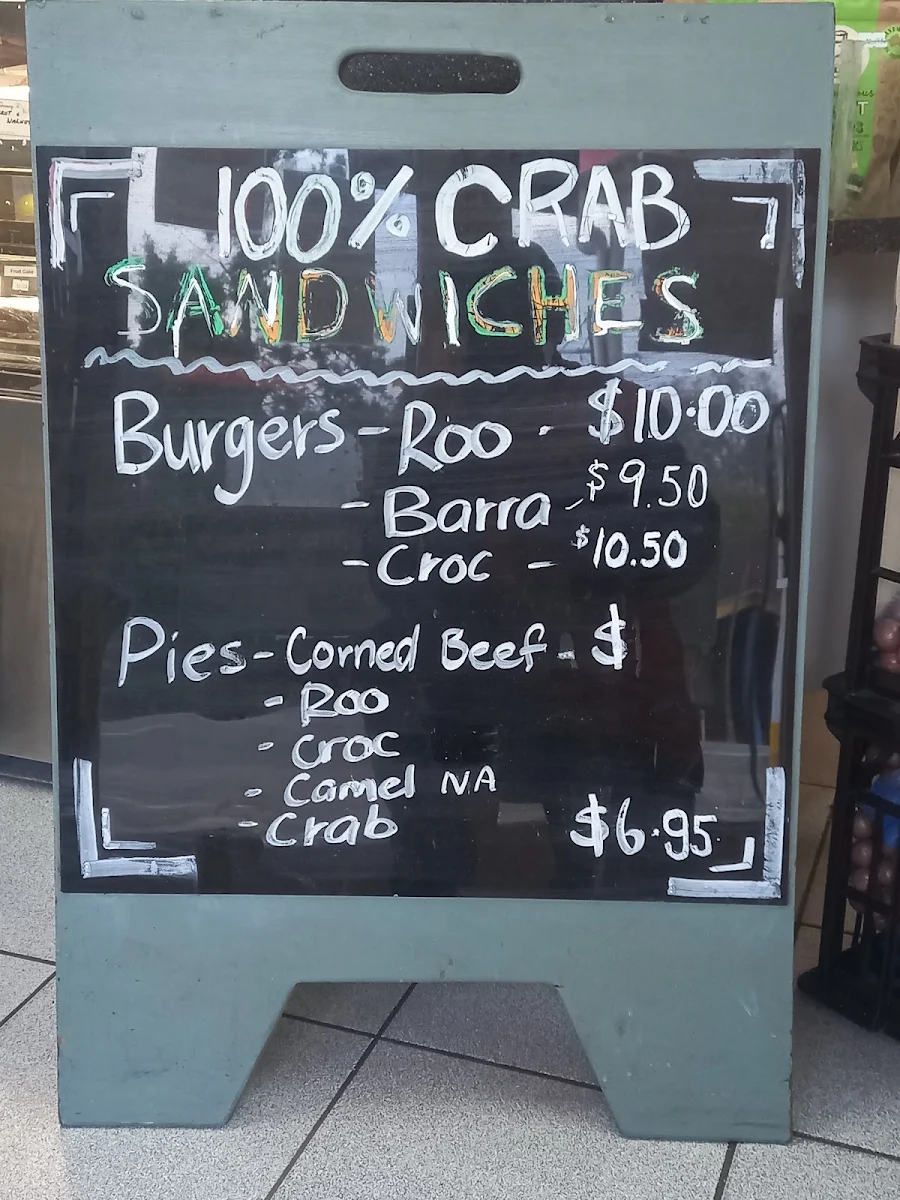 100% CRAB
SANDWICHES
Burgers - Roo - $10.00
- Barra - $9.50
- Croc - $10.50
Pies - Corned Beef - $
- Roo
- Croc
- Camel NA
- Crab $6.95
Fruit Cake